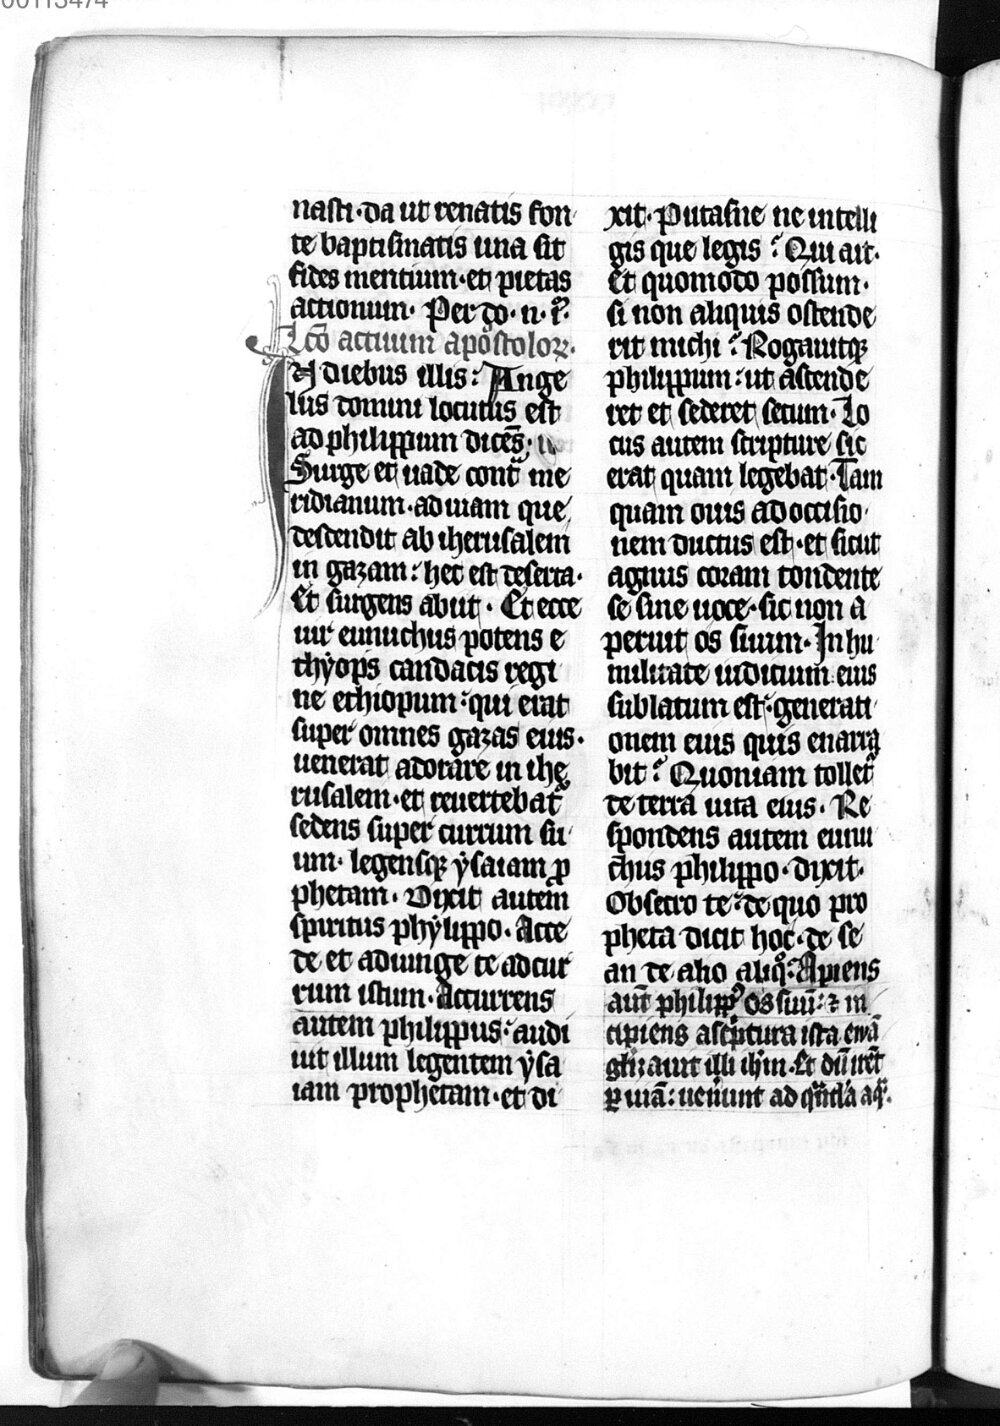 00113474
nasti·da ut renatis fon
te baptismatis una sit
fides mentium·et pietas
actionum· Per do·n·
Lc̄o actuum apostoloꝝ·
In diebus illis: Ange
lus domini locutus est
ad philippum dicēs:
Surge et uade cont̄ me
ridianum·ad uiam que
descendit ab iherusalem
in gazam: hec est deserta·
Et surgens abiit· Et ecce
uir eunuchus potens e
thyops candacis regi
ne ethiopum: qui erat
super omnes gazas eius·
uenerat adorare in ihe
rusalem·et reuertebat᷑
sedens super currum su
um· legensqꝫ ysaiam ꝓ
phetam· Dixit autem
spiritus phylippo· Acce
de et adiunge te ad cur
rum istum· Accurrens
autem philippus: audi
uit illum legentem ysa
iam prophetam·et di
xit· Putasne ne intelli
gis que legis? Qui ait·
Et quomodo possum·
si non aliquis ostende
rit michi? Rogauitqꝫ
philippum: ut ascende
ret et sederet secum· Lo
cus autem scripture sic
erat quam legebat· Tam
quam ouis ad occisio
nem ductus est·et sicut
agnus coram tondente
se sine uoce·sic non a
peruit os suum· In hu
militate iudicium eius
sublatum est: generati
onem eius quis enarra
bit? Quoniam tollet᷑
de terra uita eius· Re
spondens autem eunu
chus philippo·dixit·
Obsecro te: de quo pro
pheta dicit hoc·de se
an de alio aliqͦ: Apiens
aut̄ philippꝰ os suū: ⁊ in
cipiens a scptura ista ewā
gliʒauit illi ih̄m·Et dū irēt
ꝑ uiā: uenerunt ad qͣndā aqͣ·